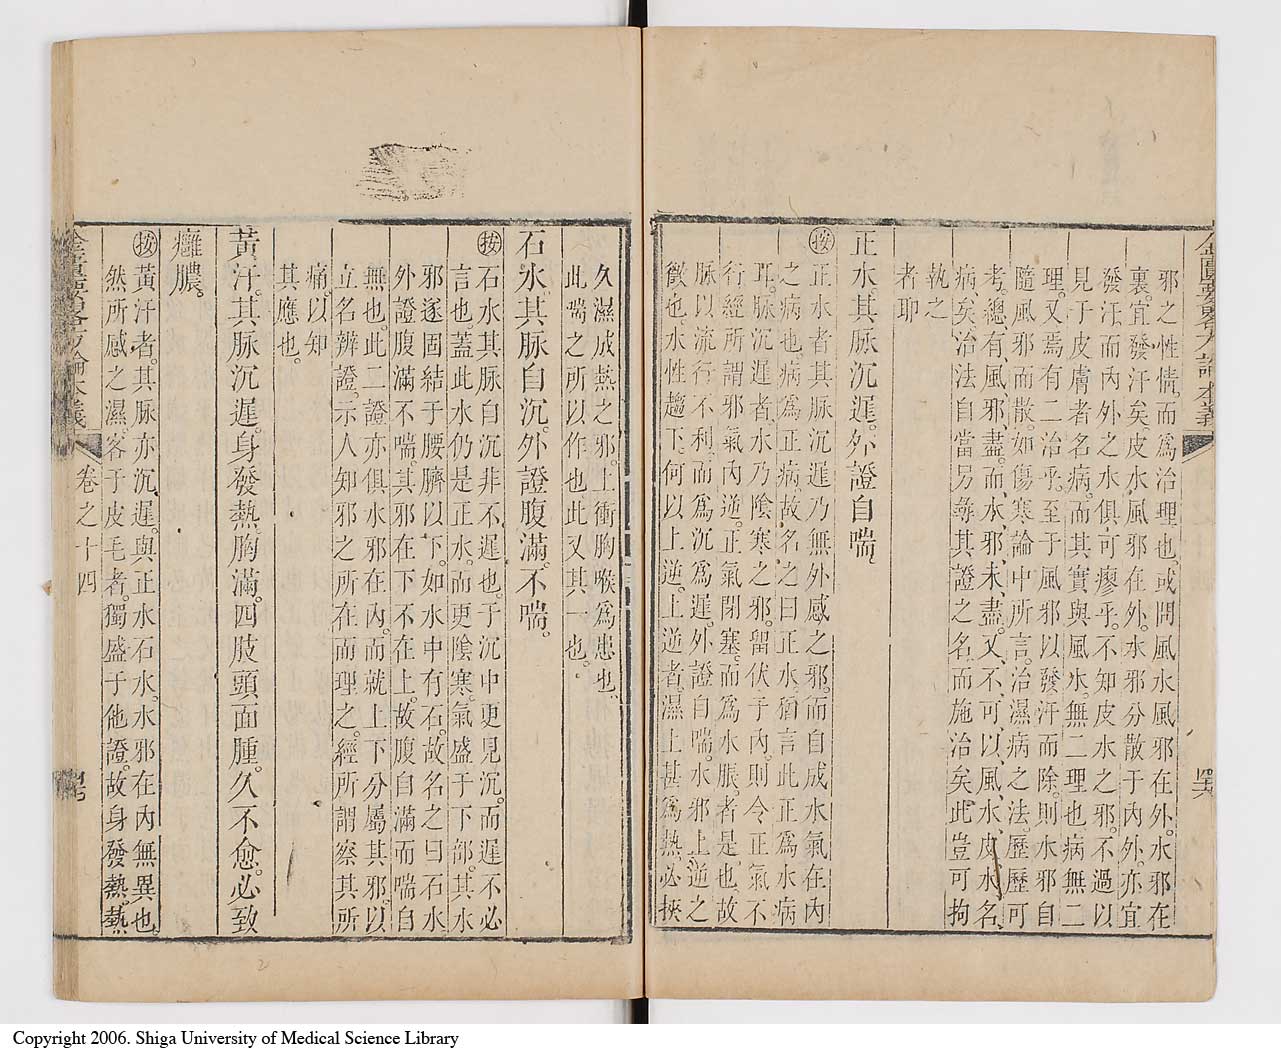 金匱要略方論本義
邪之性情而爲治理也。或問風水風邪在外。水邪在
裏。宜發汗矣皮水風邪在外。水邪分散于內外。亦宜
發汗。而內外之水俱可瘳乎。不知皮水之邪。不過以
見于皮膚者名病。而其實與風水。無二理也。病無二
理。又焉有二治乎。至于風邪以發汗而除。則水邪自
隨風邪而散。如傷寒論中所言。治濕病之法。歷歷可
考。總有風邪盡。而水邪未盡。又不可以風水皮水名
病矣。治法自當另尋其證之名。而施治矣。此豈可拘
執之
者耶
正水其脉沉遲。外證自喘。
按正水者其脉沉遲乃無外感之邪。而自成水氣在內
之病也。病爲正病。故名之曰正水。猶言此正爲水病
耳。脉沉遲者。水乃陰寒之邪。留伏于內。則令正氣不
行。經所謂邪氣內逆。正氣閉塞。而爲水脹者是也。故
脉以流行不利。而爲沉爲遲。外證自喘。水邪上逆之
徵也。水性趨下。何以上逆。上逆者。濕上甚爲熱。必挾
久濕成熱之邪。上衝胸喉爲患也。
此喘之所以作也此又其一也。
石水。其脉自沉。外證腹滿。不喘。
按石水其脉自沉非不遲也。于沉中更見沉。而遲不必
言也。蓋此水仍是正水。而更陰寒。氣盛于下部。其水
邪遂固結于腰臍以下。如水中有石。故名之曰石水
外證腹滿不喘。其邪在下不在上。故腹自滿而喘自
無也。此二證。亦俱水邪在內。而就上下分屬其邪。以
立名辨證。示人知邪之所在而理之。經所謂察其所
痛。以知
其應也。
黃汗。其脉沉遲。身發熱。胸滿。四肢頭面腫。久不愈。必致
癰膿。
按黃汗者。其脉亦沉遲。與正水石水。水邪在內無異也。
然所感之濕。客于皮毛者。獨盛于他證。故身發熱。熱
金匱要略方論本義
卷之十四
Copyright 2006. Shiga University of Medical Science Library